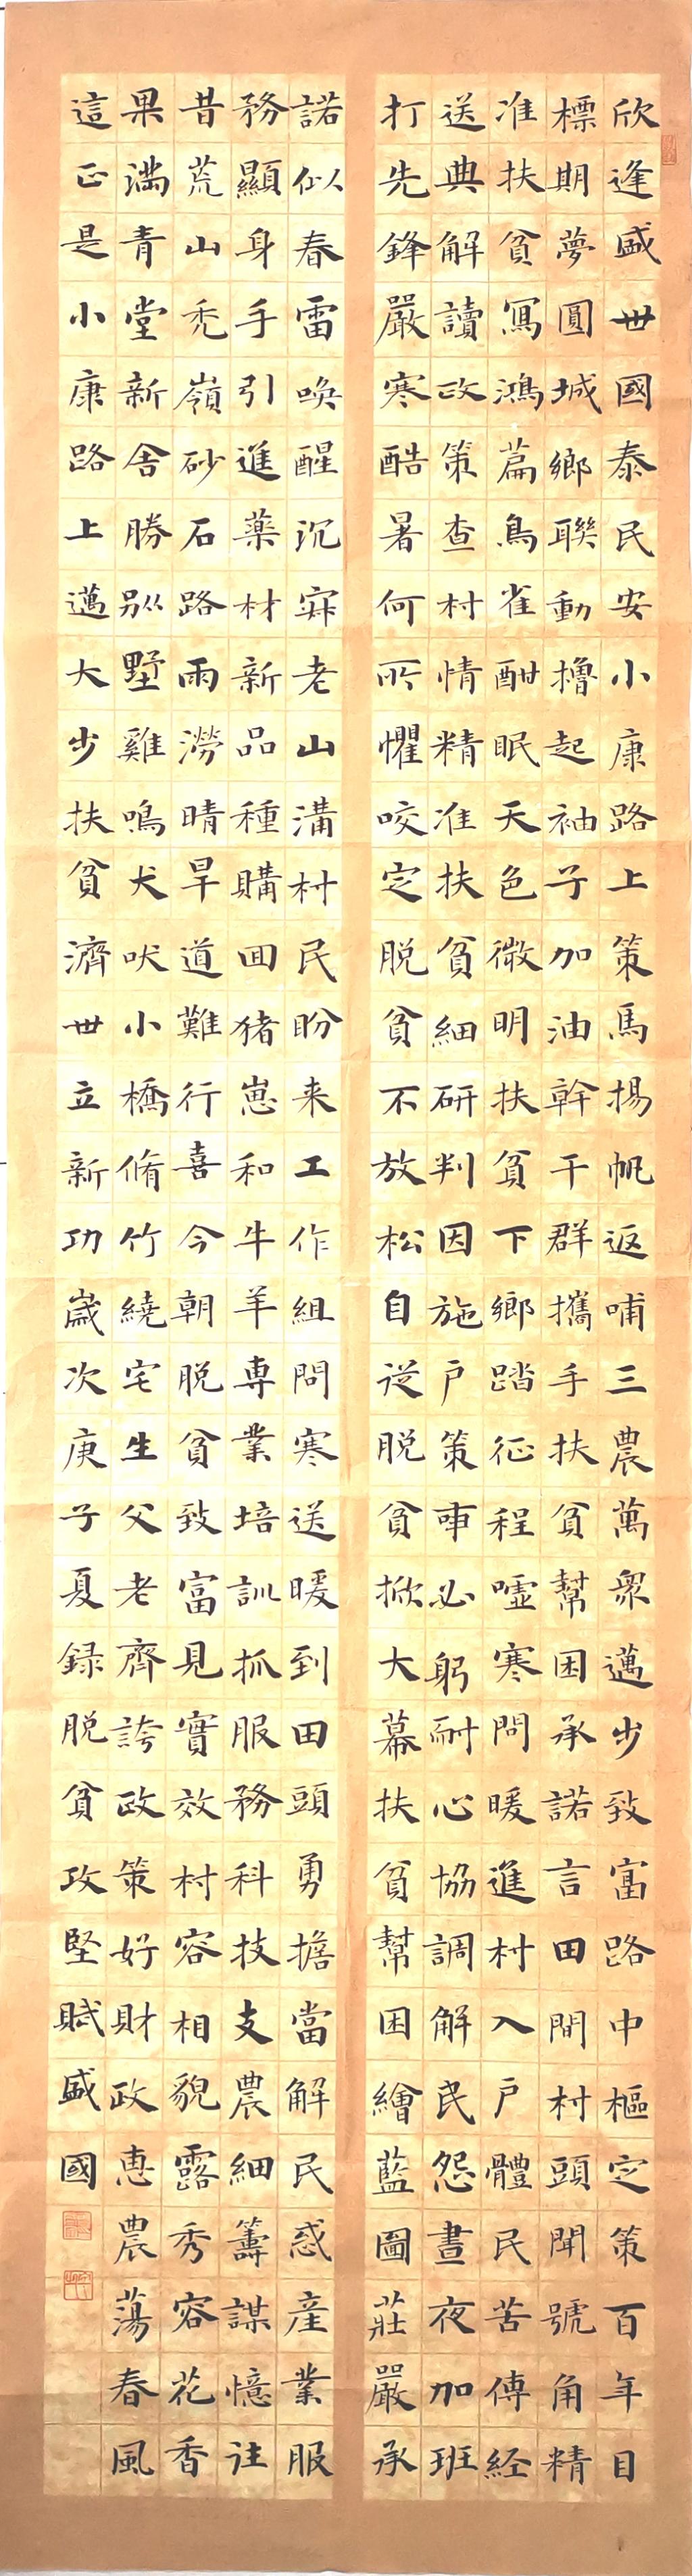 欣逢盛世國泰民安小康路上策馬揚帆返哺三農萬衆邁步致富路中樞定策百年目
標期夢圓城鄉聯動擼起袖子加油幹干群攜手扶貧幫困承諾言田間村頭聞號角精
准扶貧寫鴻篇鳥雀酣眠天色微明扶貧下鄉踏征程噓寒問暖進村入户體民苦傳経
送典解讀政策查村情精准扶貧細研判因施户策事必躬耐心協調解民怨晝夜加班
打先鋒嚴寒酷暑何所懼咬定脱貧不放松自從脱貧掀大幕扶貧幫困繪藍圖莊嚴承
諾似春雷喚醒沉寂老山溝村民盼来工作組問寒送暖到田頭勇擔當解民惑産業服
務顯身手引進藥材新品種購回猪崽和牛羊專業培訓抓服務科技支農細籌謀憶往
昔荒山禿嶺砂石路雨澇晴旱道難行喜今朝脱貧致富見實效村容相貌露秀容花香
果満青堂新舍勝别墅雞鳴犬吠小橋脩竹繞宅生父老齊誇政策好財政惠農蕩春風
這正是小康路上邁大步扶貧濟世立新功歲次庚子夏録脱貧攻堅賦盛國